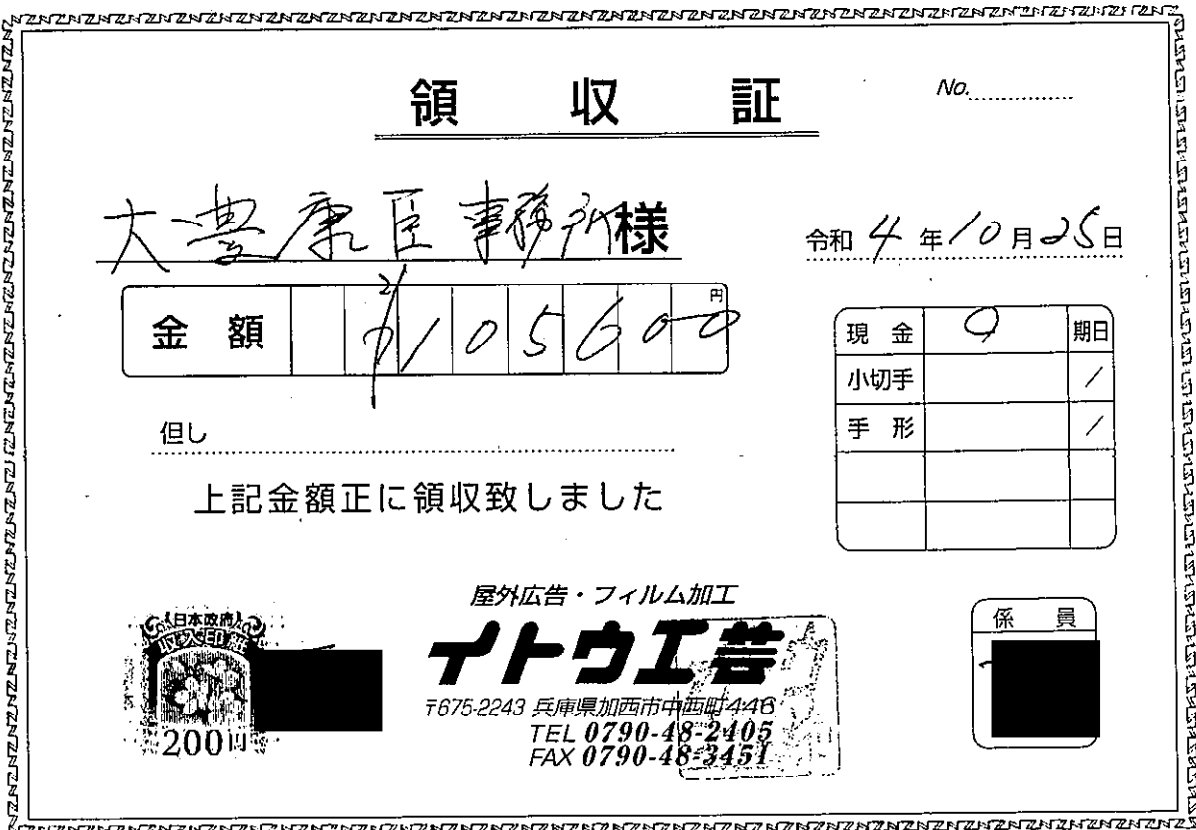 領収証
No.
大豊康臣事務所様
令和4年10月25日
金額 ¥105600円
現金 期日
小切手 /
手形 /
但し
上記金額正に領収致しました
日本政府
収入印紙
200円
屋外広告・フィルム加工
イトウ工芸
〒675-2243 兵庫県加西市中西町446
TEL 0790-48-2405
FAX 0790-48-3451
係員